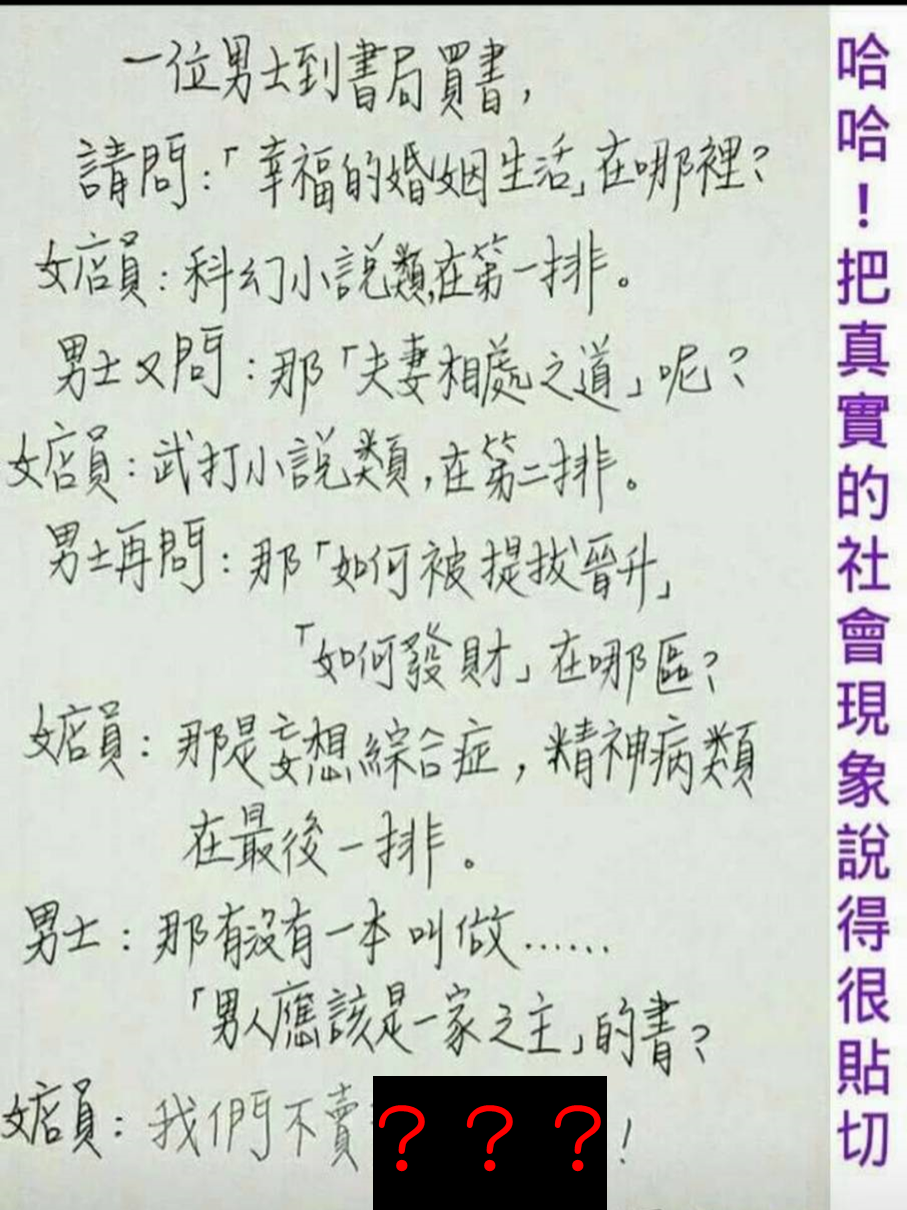 一位男士到書局買書，
請問：「幸福的婚姻生活」在哪裡？
女店員：科幻小說類,在第一排。
男士又問：那「夫妻相處之道」呢？
女店員：武打小說類,在第二排。
男士再問：那「如何被提拔晉升」
「如何發財」在哪區？
女店員：那是妄想綜合症，精神病類
在最後一排。
男士：那有沒有一本叫做......
「男人應該是一家之主」的書？
女店員：我們不賣？？？！
哈哈！把真實的社會現象說得很貼切